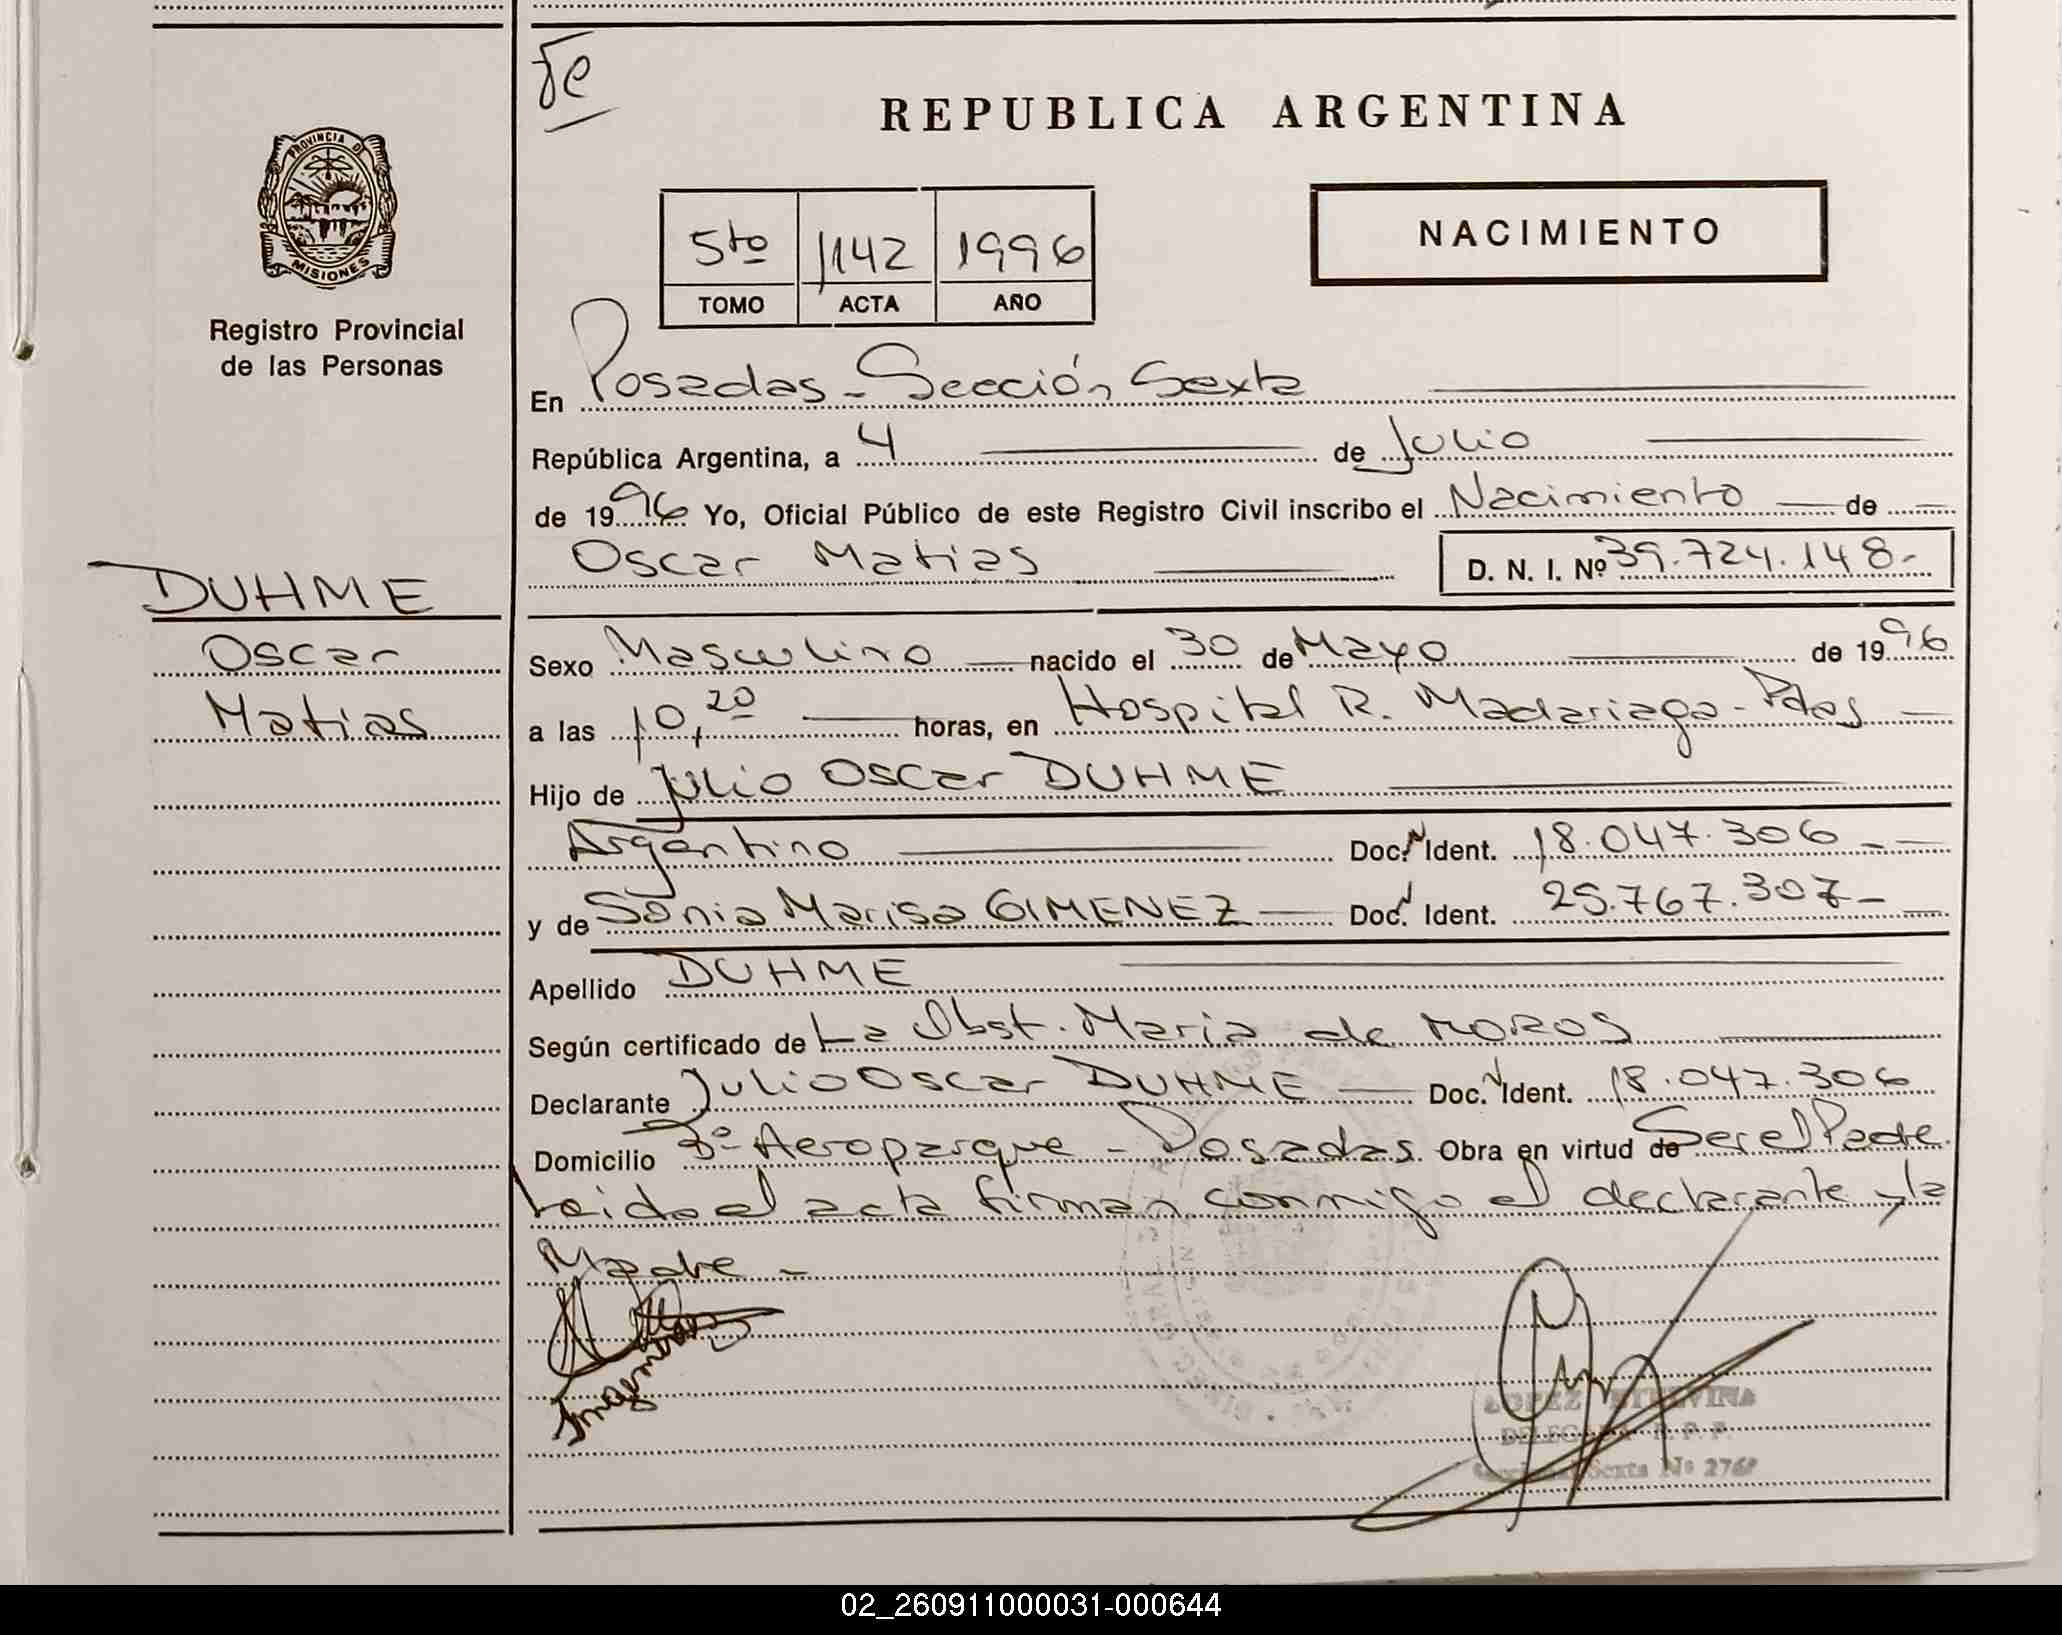 REPUBLICA ARGENTINA
PROVINCIA DE
MISIONES
Registro Provincial
de las Personas
5to 1142 1996
TOMO ACTA AÑO
NACIMIENTO
En Posadas - Sección Sexta
República Argentina, a 4 de Julio
de 1996 Yo, Oficial Público de este Registro Civil inscribo el Nacimiento de
Oscar Matias D. N. I. Nº 39.724.148-
DUHME
Oscar
Matias
Sexo Masculino nacido el 30 de Mayo de 1996
a las 10,20 horas, en Hospital R. Madariaga - Pdas
Hijo de Julio Oscar DUHME
Argentino Doc. N Ident. 18.047.306
y de Sonia Marisa GIMENEZ Doc. N Ident. 25.767.307-
Apellido DUHME
Según certificado de La Obst. Maria de MOROS
Declarante Julio Oscar DUHME Doc. N Ident. 18.047.306
Domicilio Bº Aeroparque - Posadas. Obra en virtud de Ser el Padre.
Leida el acta firman conmigo el declarante y la
Madre -
LOPEZ ETELVINA
DELEGADA R. P. P.
Sexta Nº 276º
02_260911000031-000644